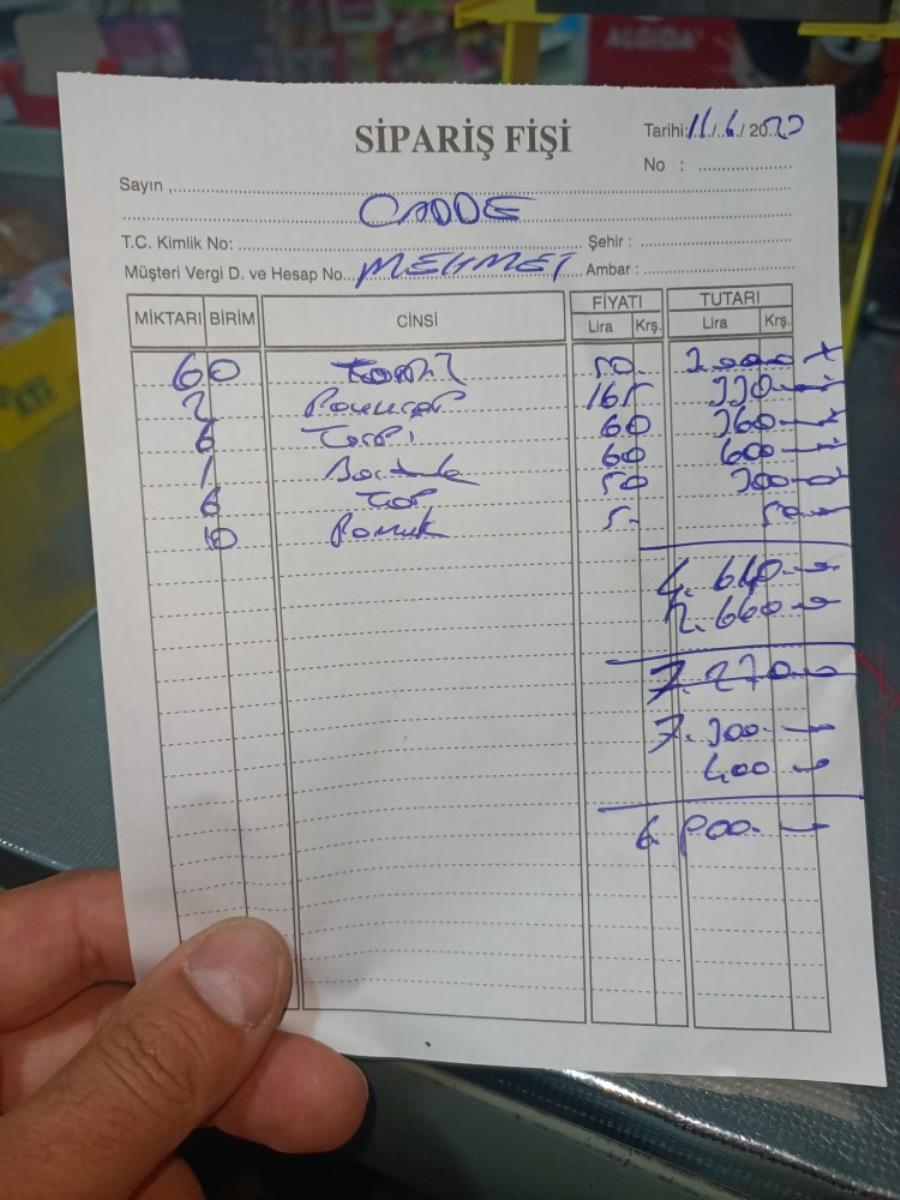 ALGIDA
SİPARİŞ FİŞİ
Tarihi: 11/6/2020
No :
Sayın ,
CADDE
T.C. Kimlik No: Şehir :
Müşteri Vergi D. ve Hesap No. MEHMET Ambar :
MİKTARI BİRİM CİNSİ FİYATI TUTARI
Lira Krş. Lira Krş.
60 50 3000
2 165 330
6 60 360
1 60 600
6 Top 50 300
10 Pamuk 5 50
4.640
2.660
7.270
7.300
400
6.900